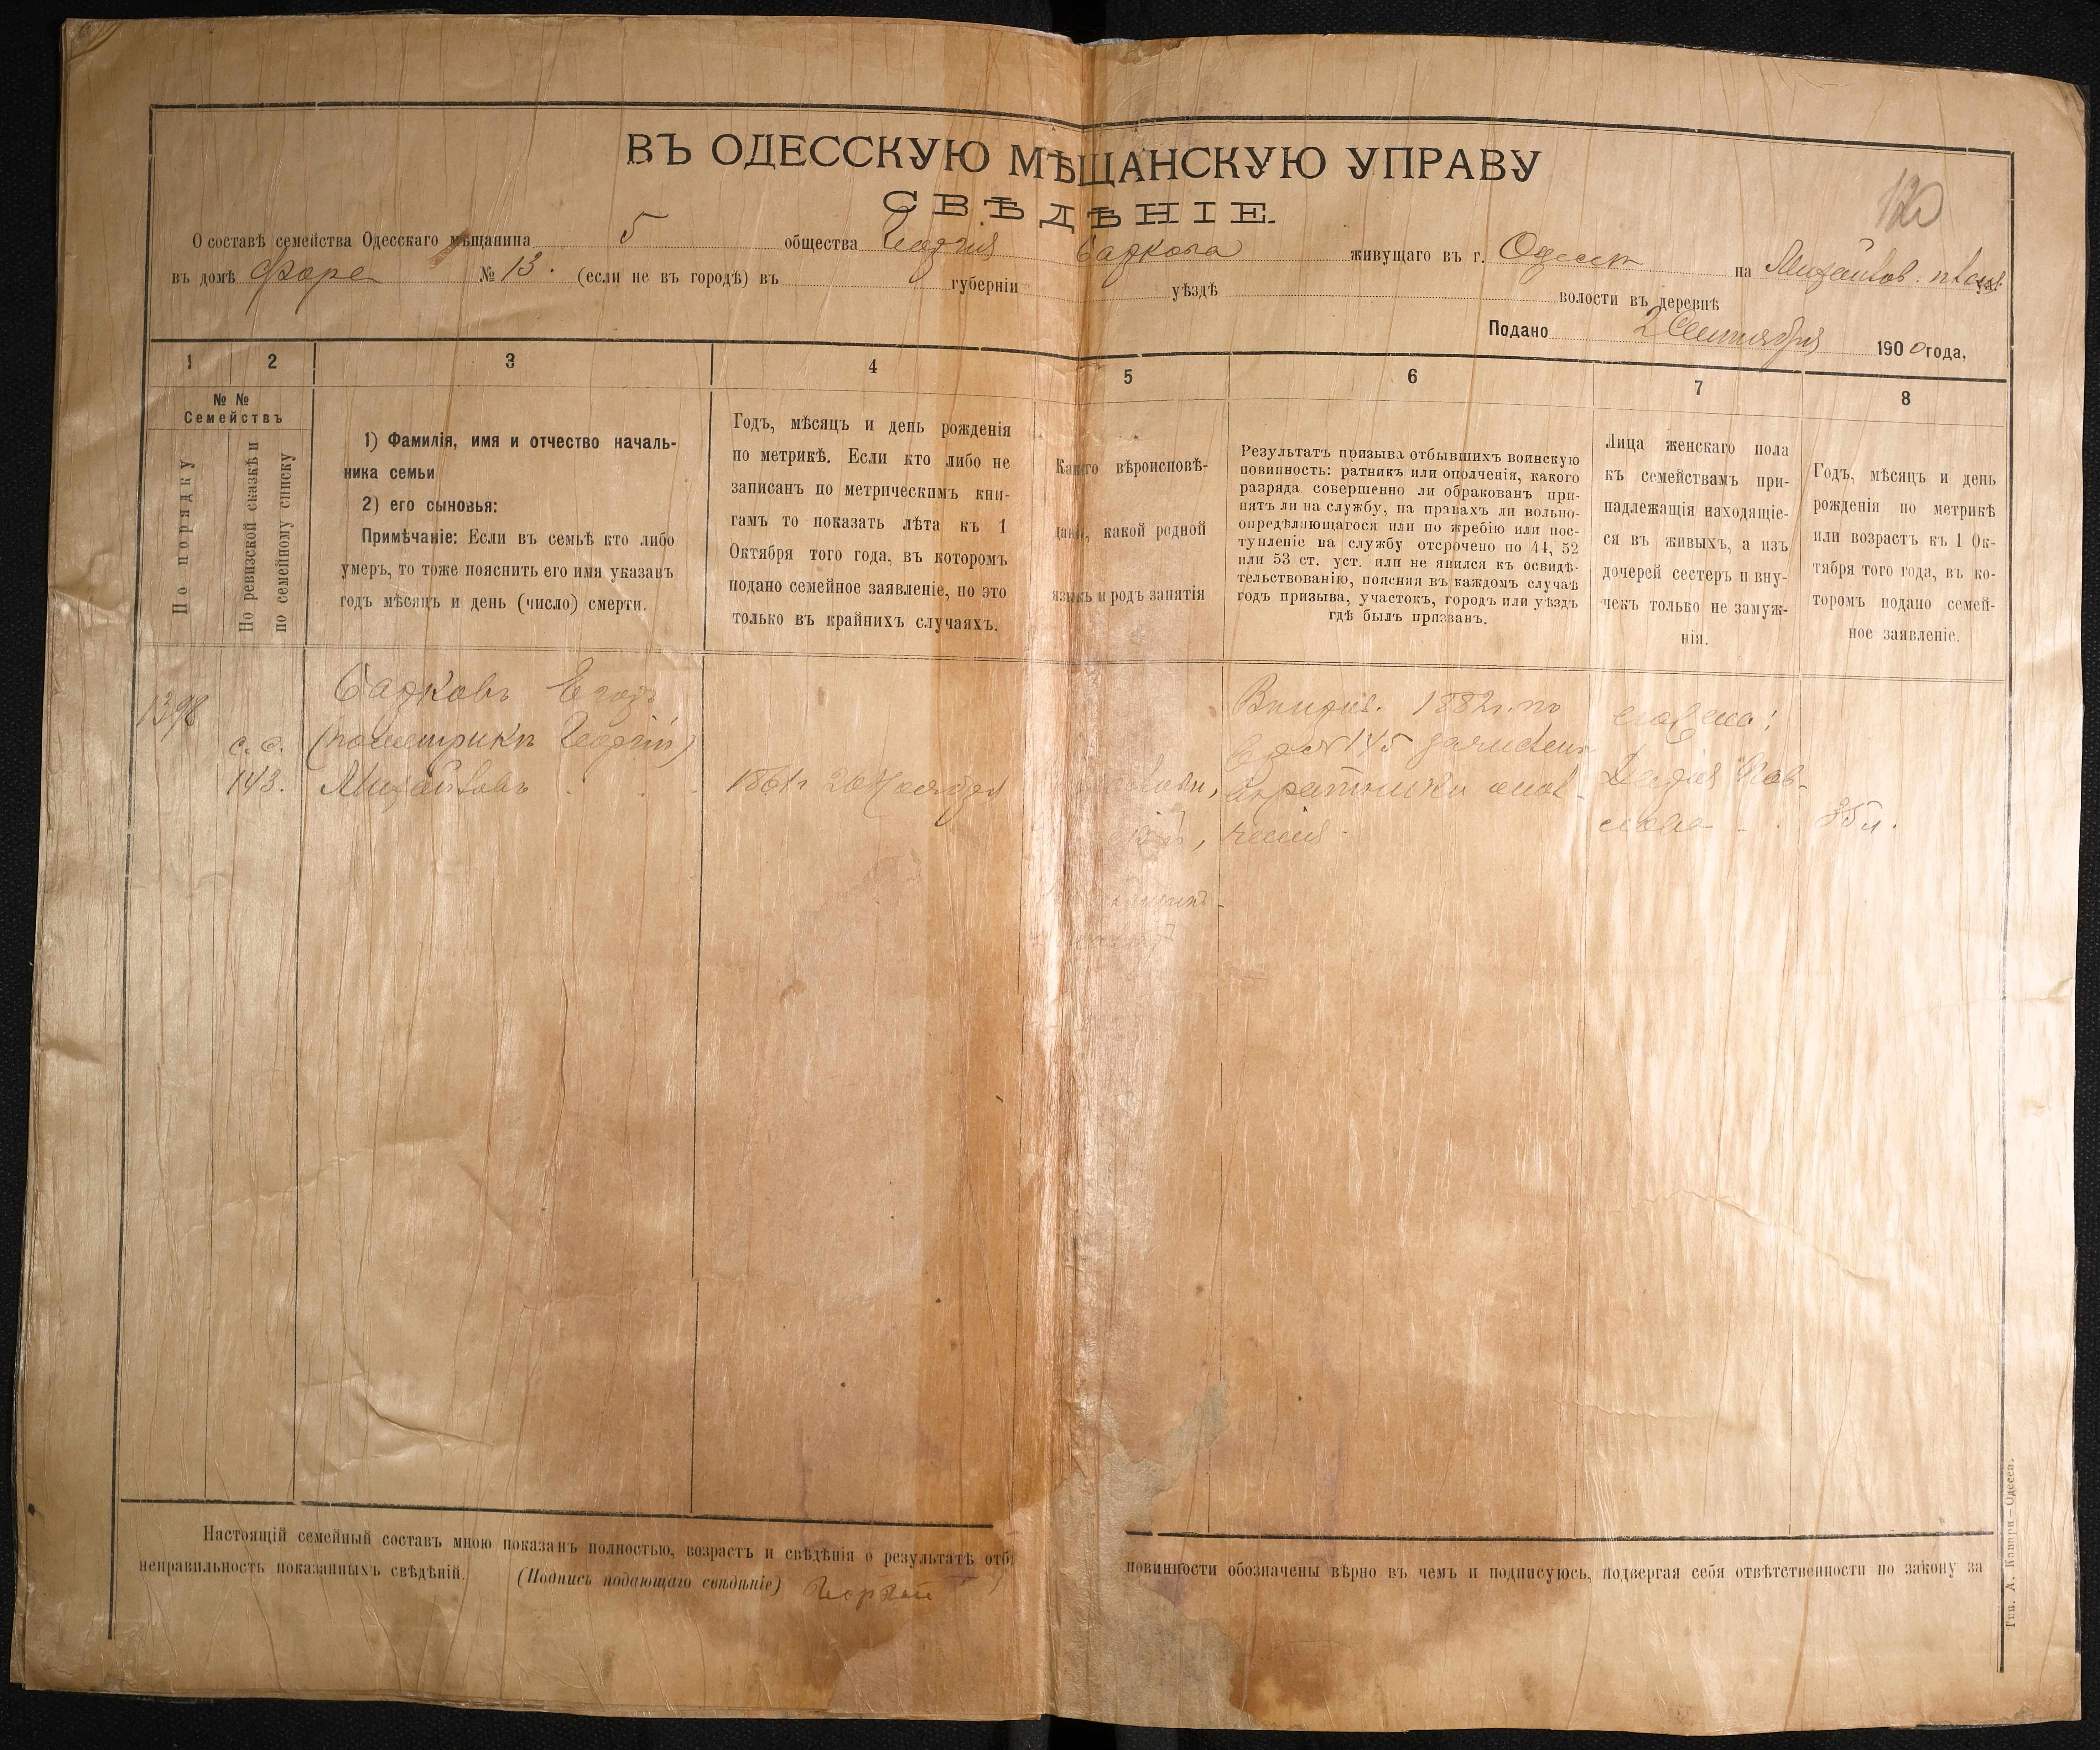 ВЪ ОДЕССКУЮ МѢЩАНСКУЮ УПРАВУ
СВѢДѢНІЕ.
120
О составѣ семейства Одесскаго мѣщанина 5 общества Георгія живущаго въ г. Одессѣ на Михайлов. площ.
въ домѣ № 13. (если не въ городѣ) въ губерніи уѣздѣ волости въ деревнѣ
Подано 2 Сентября 1900 года,
1 2 3 4 5 6 7 8
№ №
Семействъ
По порядку
По ревизской сказкѣ и
по семейному списку
1) Фамилія, имя и отчество началь-
ника семьи
2) его сыновья:
Примѣчаніе: Если въ семьѣ кто либо
умеръ, то тоже пояснить его имя указавъ
годъ мѣсяцъ и день (число) смерти.
Годъ, мѣсяцъ и день рожденія
по метрикѣ. Если кто либо не
записанъ по метрическимъ кни-
гамъ то показать лѣта къ 1
Октября того года, въ которомъ
подано семейное заявленіе, но это
только въ крайнихъ случаяхъ.
Какого вѣроисповѣ-
данія, какой родной
языкъ и родъ занятія
Результатъ призыва отбывшихъ воинскую
повинность: ратникъ или ополченія, какого
разряда совершенно ли обракованъ при-
нятъ ли на службу, на правахъ ли вольно-
опредѣляющагося или по жребію или пос-
тупленіе на службу отсрочено по 44, 52
или 53 ст. уст. или не явился къ освидѣ-
тельствованію, поясняя въ каждомъ случаѣ
годъ призыва, участокъ, городъ или уѣздъ
гдѣ былъ призванъ.
Лица женскаго пола
къ семействамъ при-
надлежащія находящіе-
ся въ живыхъ, а изъ
дочерей сестеръ и вну-
чекъ только не замуж-
нія.
Годъ, мѣсяцъ и день
рожденія по метрикѣ
или возрастъ къ 1 Ок-
тября того года, въ ко-
торомъ подано семей-
ное заявленіе.
1398
с. с.
143.
Егоръ
(по метрикѣ Георгій)
Михайловъ
1861 г. 20 Ноября
1882 г. по
№ 145 зачисленъ
въ ратники опол-
ченія.
его жена:
35 л.
Настоящій семейный составъ мною показанъ полностью, возрастъ и свѣдѣнія о результатѣ отб повинности обозначены вѣрно въ чемъ и подписуюсь, подвергая себя отвѣтственности по закону за
неправильность показанныхъ свѣдѣній. (Подпись подающаго свѣдѣніе)